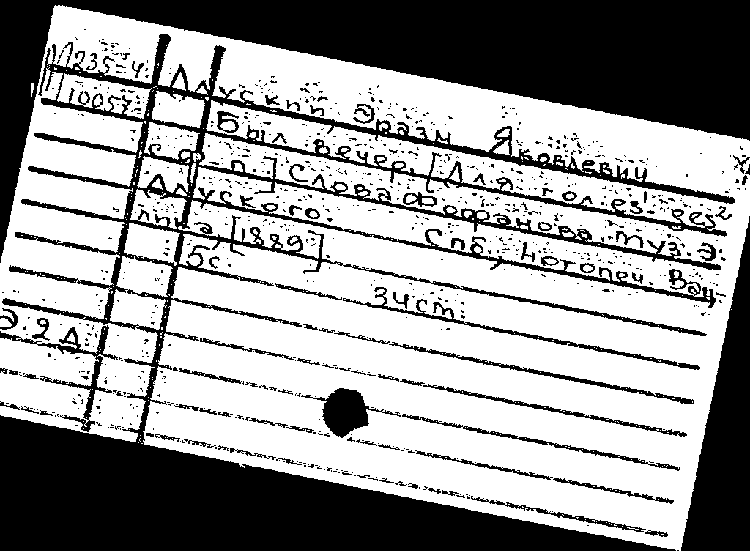 М 235-4
10057
Длусский, Эразм Яковлевич
Был вечер. [Для гол. es¹-ges²
с ф.-п.] Слова Фофанова, муз. Э.
Длуского. Спб., Нотопеч. Вац
лика, [1889].
5с.
34см.
Э.2Д